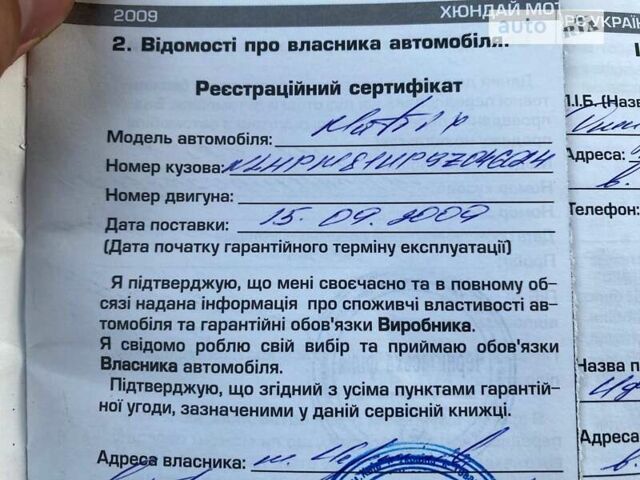 2009
ХЮНДАЙ МОТОРС УКРАЇН
auto RIA
2. Відомості про власника автомобіля.
Реєстраційний сертифікат
Модель автомобіля: Matrix
Номер кузова:
Номер двигуна:
Дата поставки: 15.09.2009
(Дата початку гарантійного терміну експлуатації)
Я підтверджую, що мені своєчасно та в повному об-
сязі надана інформація про споживчі властивості ав-
томобіля та гарантійні обов'язки Виробника.
Я свідомо роблю свій вибір та приймаю обов'язки
Власника автомобіля.
Підтверджую, що згідний з усіма пунктами гарантій-
ної угоди, зазначеними у даній сервісній книжці.
Адреса власника: м.
П.І.Б. (Назва
Адреса:
Телефон:
Назва п